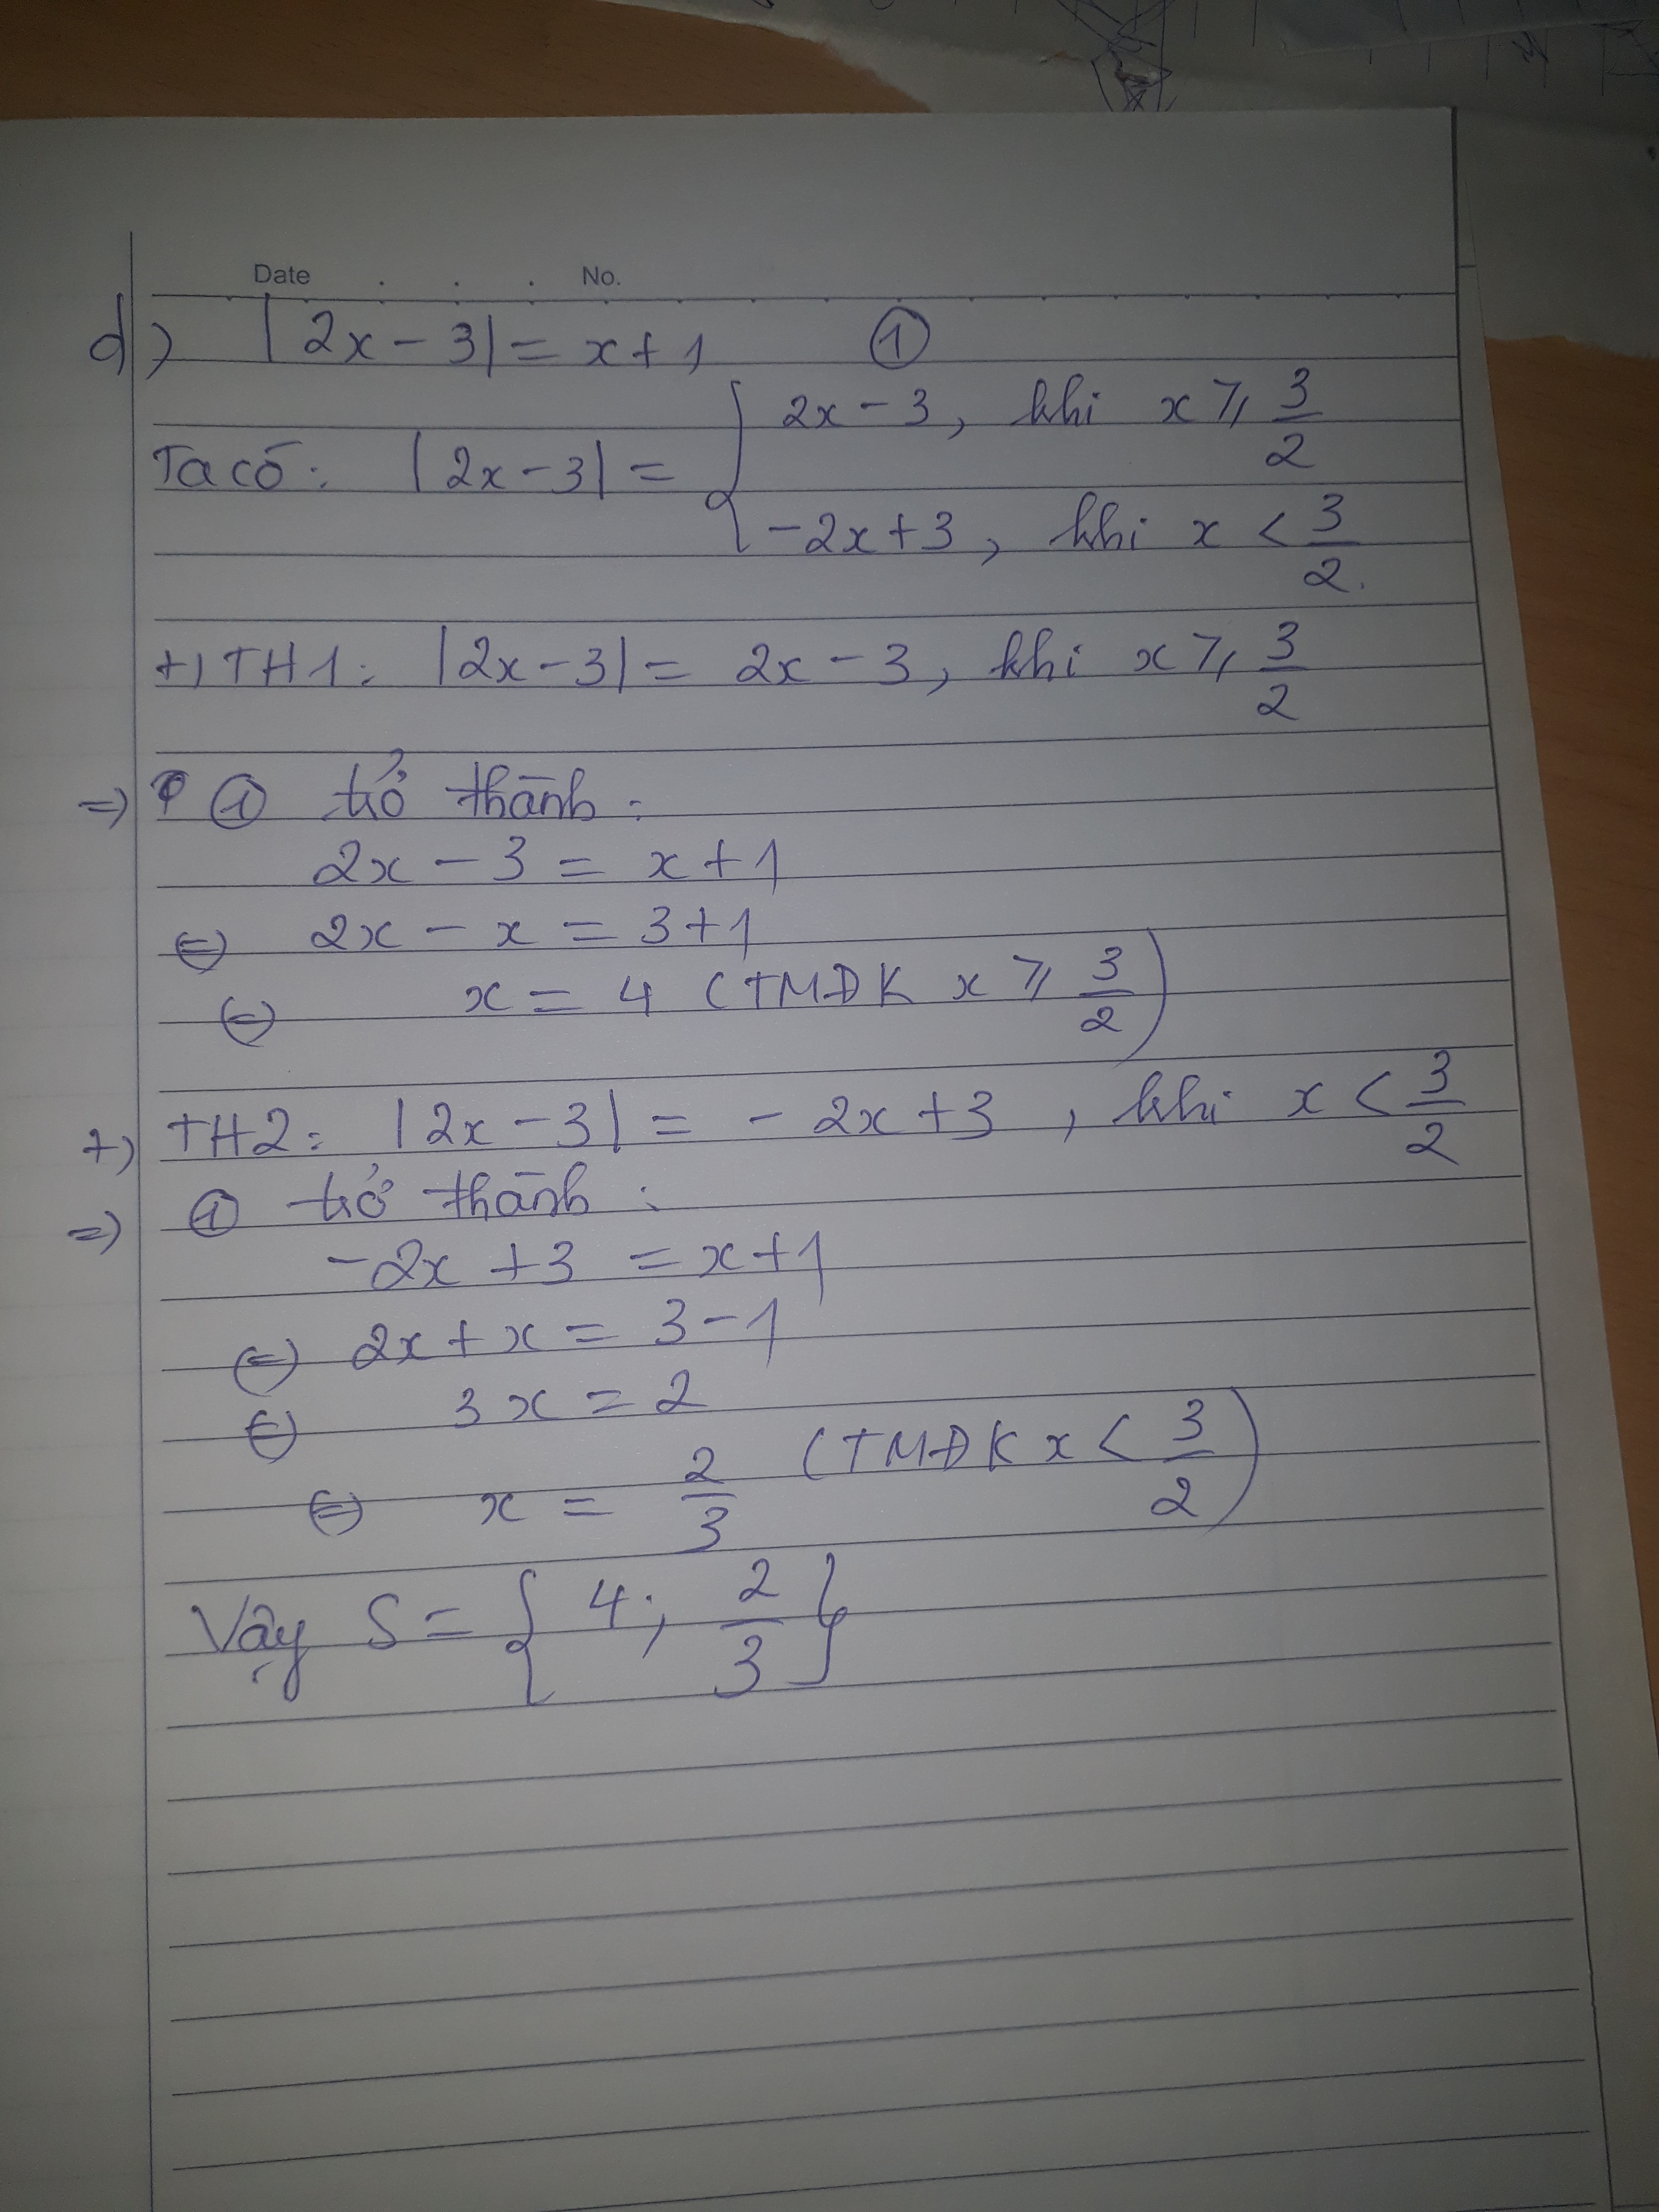 Date . . . No.
d) |2x - 3| = x + 1 ①
Ta có: |2x - 3| = { 2x - 3, khi x ⩾ 3/2
-2x + 3, khi x < 3/2.
+) TH1: |2x - 3| = 2x - 3, khi x ⩾ 3/2
=) ① trở thành:
2x - 3 = x + 1
(=) 2x - x = 3 + 1
(=) x = 4 (TMĐK x ⩾ 3/2)
+) TH2: |2x - 3| = - 2x + 3, khi x < 3/2
=) ① trở thành:
-2x + 3 = x + 1
(=) 2x + x = 3 - 1
(=) 3x = 2
(=) x = 2/3 (TMĐK x < 3/2)
Vậy S = { 4; 2/3 }